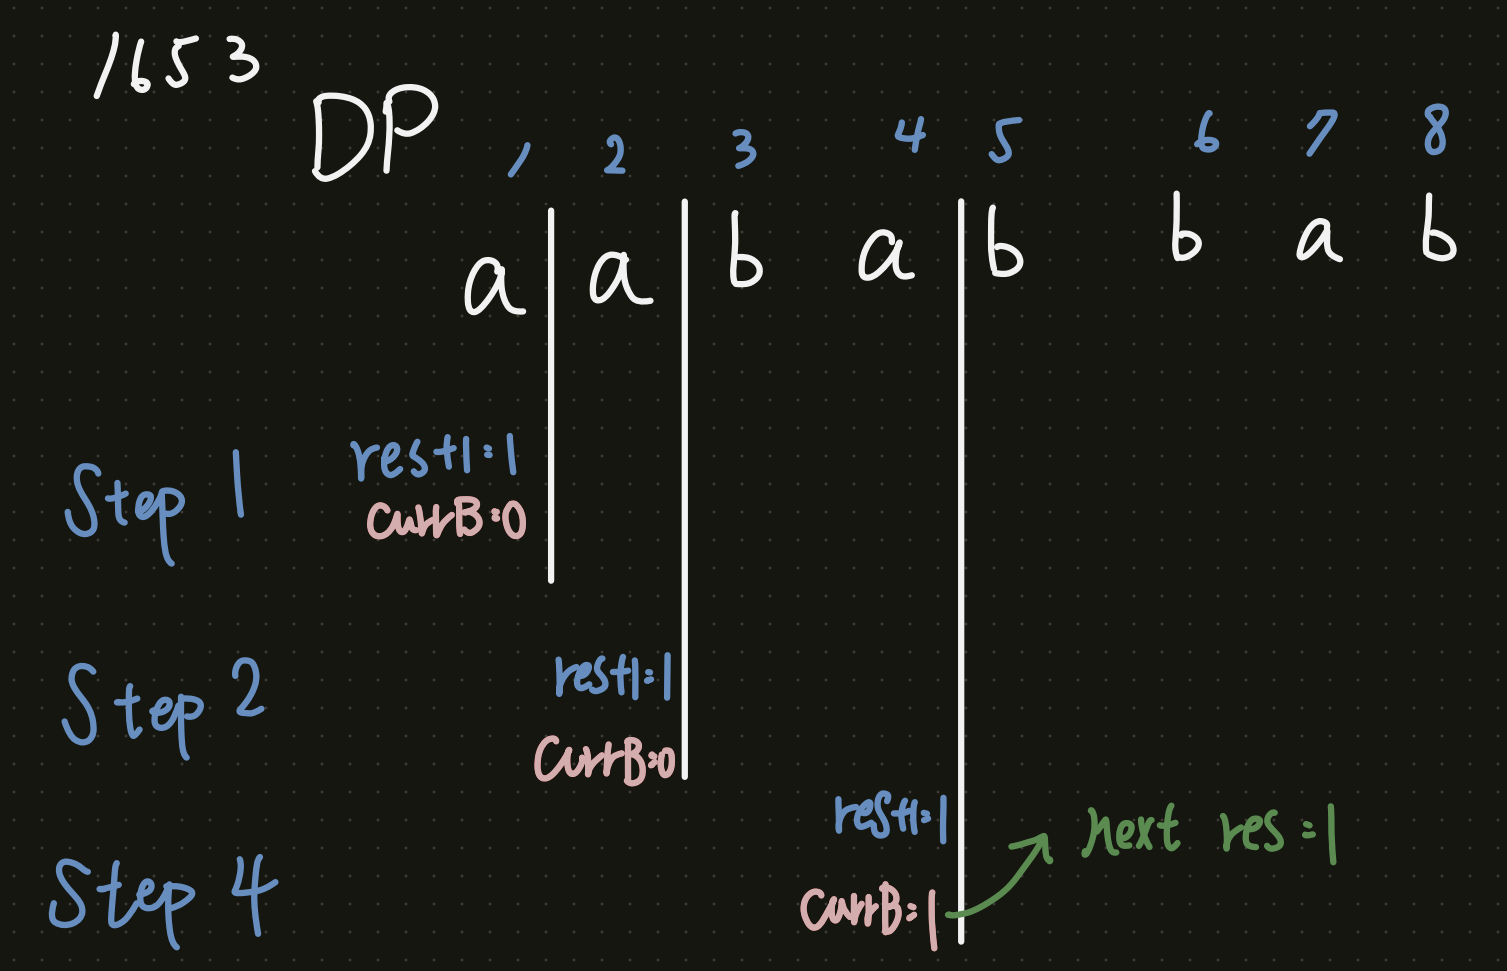 1653
DP
1 2 3 4 5 6 7 8
a a b a b b a b
Step 1
res+1=1
currB=0
Step 2
res+1=1
currB=0
Step 4
res+1=1
currB=1
next res=1